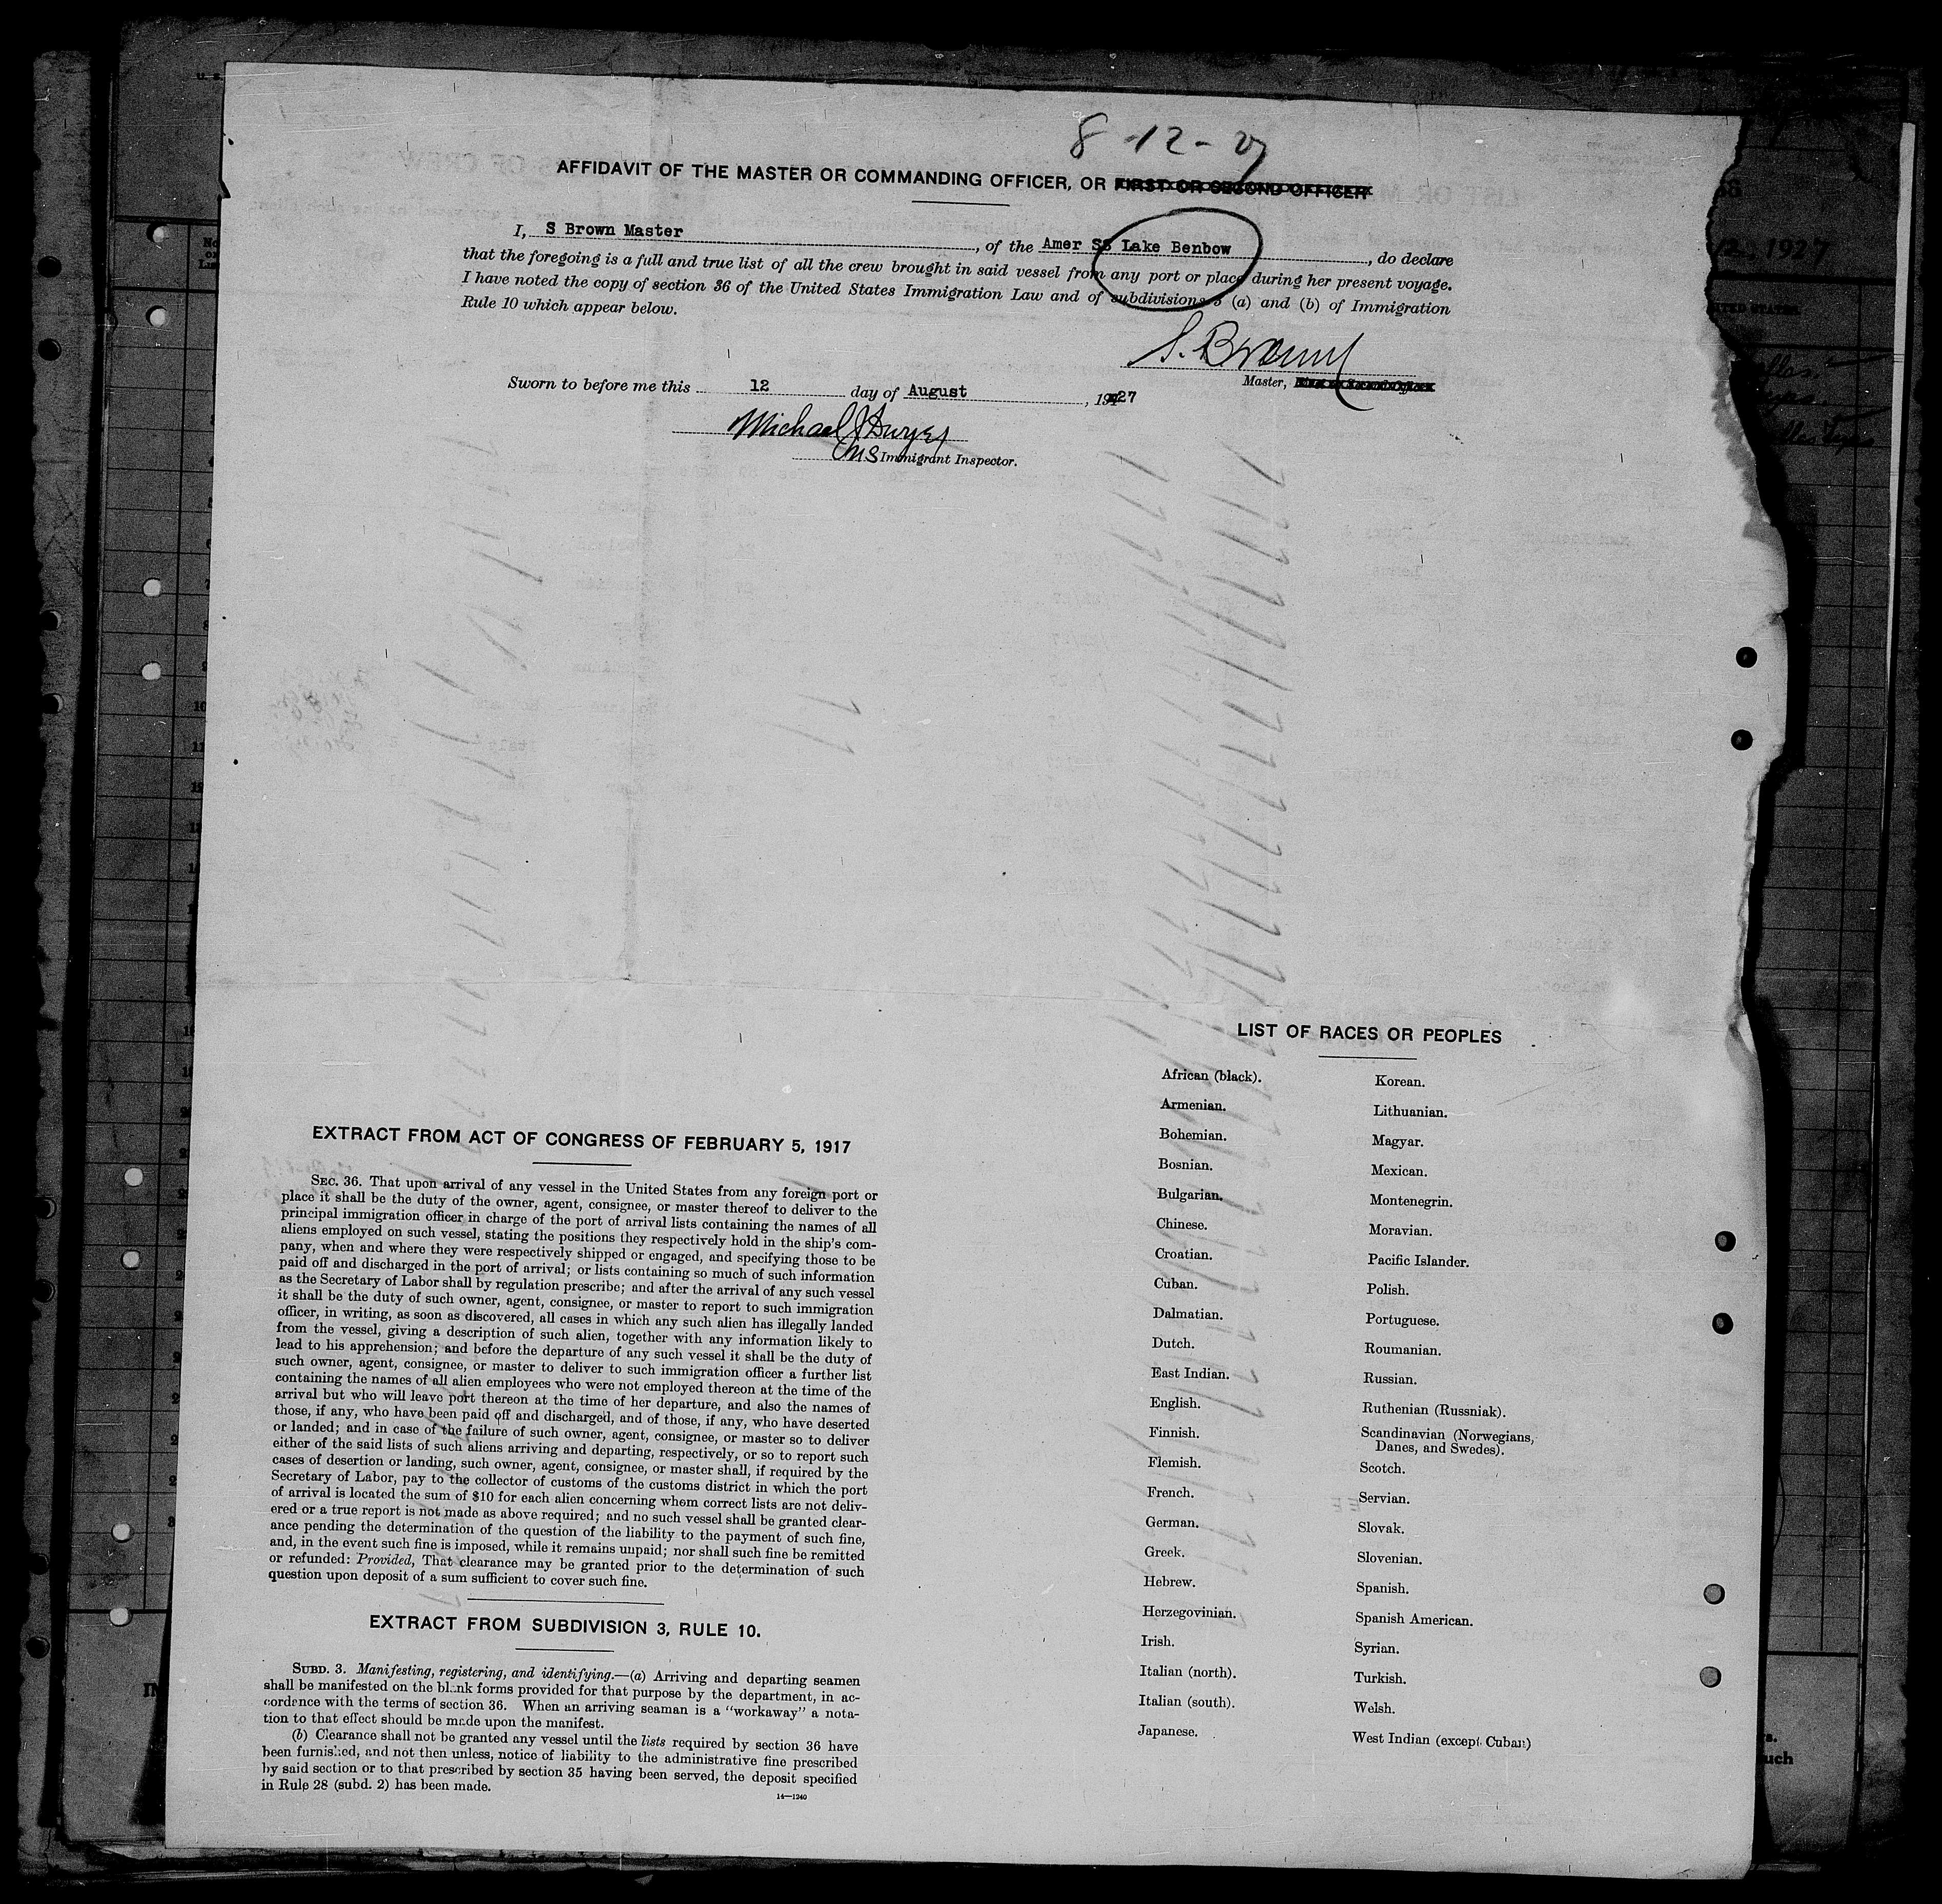 8-12-27
AFFIDAVIT OF THE MASTER OR COMMANDING OFFICER, OR FIRST OR SECOND OFFICER
I, S Brown Master, of the Amer SS Lake Benbow, do declare
that the foregoing is a full and true list of all the crew brought in said vessel from any port or place during her present voyage.
I have noted the copy of section 36 of the United States Immigration Law and of subdivisions 3 (a) and (b) of Immigration
Rule 10 which appear below.
S. Brown
Master,
Sworn to before me this 12 day of August, 1927
Michael J Dwyer
Immigrant Inspector.
EXTRACT FROM ACT OF CONGRESS OF FEBRUARY 5, 1917
SEC. 36. That upon arrival of any vessel in the United States from any foreign port or
place it shall be the duty of the owner, agent, consignee, or master thereof to deliver to the
principal immigration officer in charge of the port of arrival lists containing the names of all
aliens employed on such vessel, stating the positions they respectively hold in the ship's com-
pany, when and where they were respectively shipped or engaged, and specifying those to be
paid off and discharged in the port of arrival; or lists containing so much of such information
as the Secretary of Labor shall by regulation prescribe; and after the arrival of any such vessel
it shall be the duty of such owner, agent, consignee, or master to report to such immigration
officer, in writing, as soon as discovered, all cases in which any such alien has illegally landed
from the vessel, giving a description of such alien, together with any information likely to
lead to his apprehension; and before the departure of any such vessel it shall be the duty of
such owner, agent, consignee, or master to deliver to such immigration officer a further list
containing the names of all alien employees who were not employed thereon at the time of the
arrival but who will leave port thereon at the time of her departure, and also the names of
those, if any, who have been paid off and discharged, and of those, if any, who have deserted
or landed; and in case of the failure of such owner, agent, consignee, or master so to deliver
either of the said lists of such aliens arriving and departing, respectively, or so to report such
cases of desertion or landing, such owner, agent, consignee, or master shall, if required by the
Secretary of Labor, pay to the collector of customs of the customs district in which the port
of arrival is located the sum of $10 for each alien concerning whom correct lists are not deliv-
ered or a true report is not made as above required; and no such vessel shall be granted clear-
ance pending the determination of the question of the liability to the payment of such fine,
and, in the event such fine is imposed, while it remains unpaid; nor shall such fine be remitted
or refunded: Provided, That clearance may be granted prior to the determination of such
question upon deposit of a sum sufficient to cover such fine.
EXTRACT FROM SUBDIVISION 3, RULE 10.
SUBD. 3. Manifesting, registering, and identifying.—(a) Arriving and departing seamen
shall be manifested on the blank forms provided for that purpose by the department, in ac-
cordance with the terms of section 36. When an arriving seaman is a "workaway" a nota-
tion to that effect should be made upon the manifest.
(b) Clearance shall not be granted any vessel until the lists required by section 36 have
been furnished, and not then unless, notice of liability to the administrative fine prescribed
by said section or to that prescribed by section 35 having been served, the deposit specified
in Rule 28 (subd. 2) has been made.
14—1240
LIST OF RACES OR PEOPLES
African (black).
Armenian.
Bohemian.
Bosnian.
Bulgarian.
Chinese.
Croatian.
Cuban.
Dalmatian.
Dutch.
East Indian.
English.
Finnish.
Flemish.
French.
German.
Greek.
Hebrew.
Herzegovinian.
Irish.
Italian (north).
Italian (south).
Japanese.
Korean.
Lithuanian.
Magyar.
Mexican.
Montenegrin.
Moravian.
Pacific Islander.
Polish.
Portuguese.
Roumanian.
Russian.
Ruthenian (Russniak).
Scandinavian (Norwegians,
Danes, and Swedes).
Scotch.
Servian.
Slovak.
Slovenian.
Spanish.
Spanish American.
Syrian.
Turkish.
Welsh.
West Indian (except Cuban)